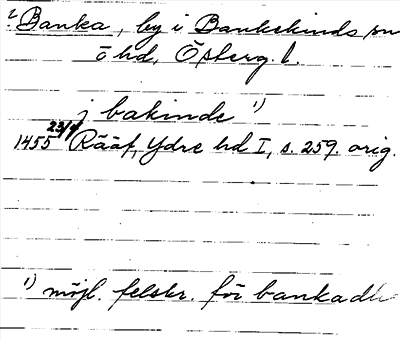 2 Banka, by i Bankekinds sn
ö hd, Österg. l.
j bakinde 1)
1455 23/4 Rääf, Ydre hd I, s. 259. orig.
1) möjl. felskr. för bankadh